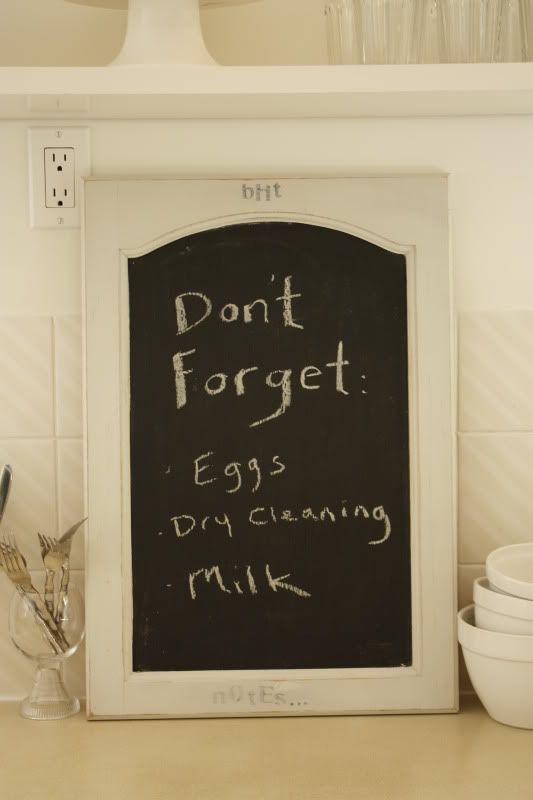 bHt
Don't
Forget:
- Eggs
- Dry Cleaning
- Milk
nOtEs...